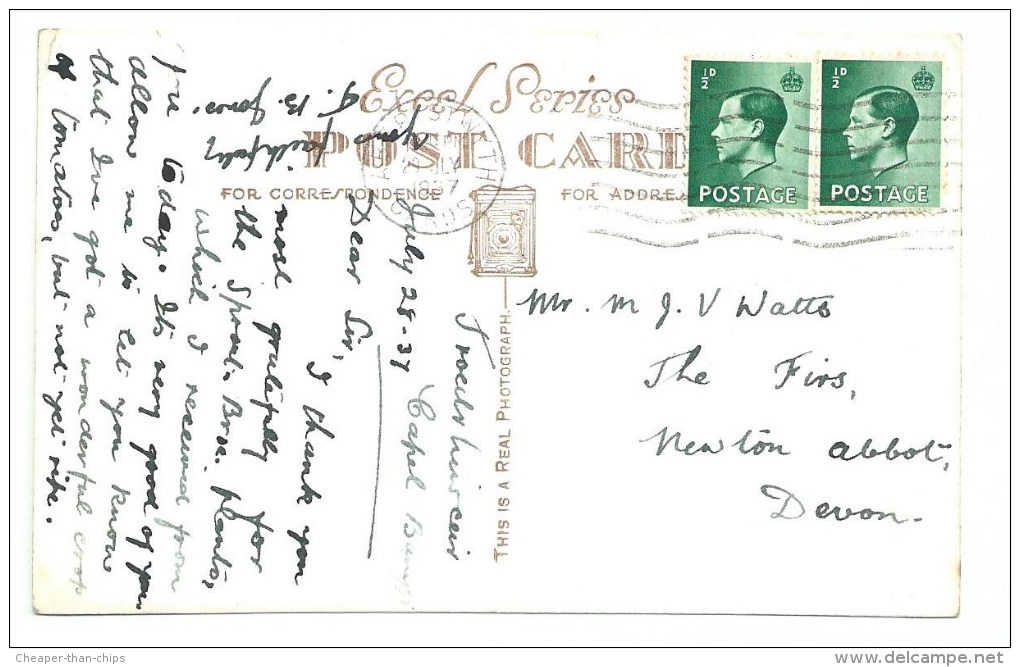 Excel Series
POST CARD
FOR CORRESPONDENCE
FOR ADDRE
THIS IS A REAL PHOTOGRAPH.
½D
POSTAGE
½D
POSTAGE
Capel Bangor
July 28-37
Dear Sir,
I thank you
most gratefully for
the Sprouts Broc. plants,
which I received from
you today. Its very good of you
allow me to let you know
that I've got a wonderful crop
of tomatoes, but not yet ripe.
Yours
faithfully
T. B. Jones.
Mr. M J. V Watts
The Firs,
Newton Abbot,
Devon.
Cheaper-than-chips
www.delcampe.net